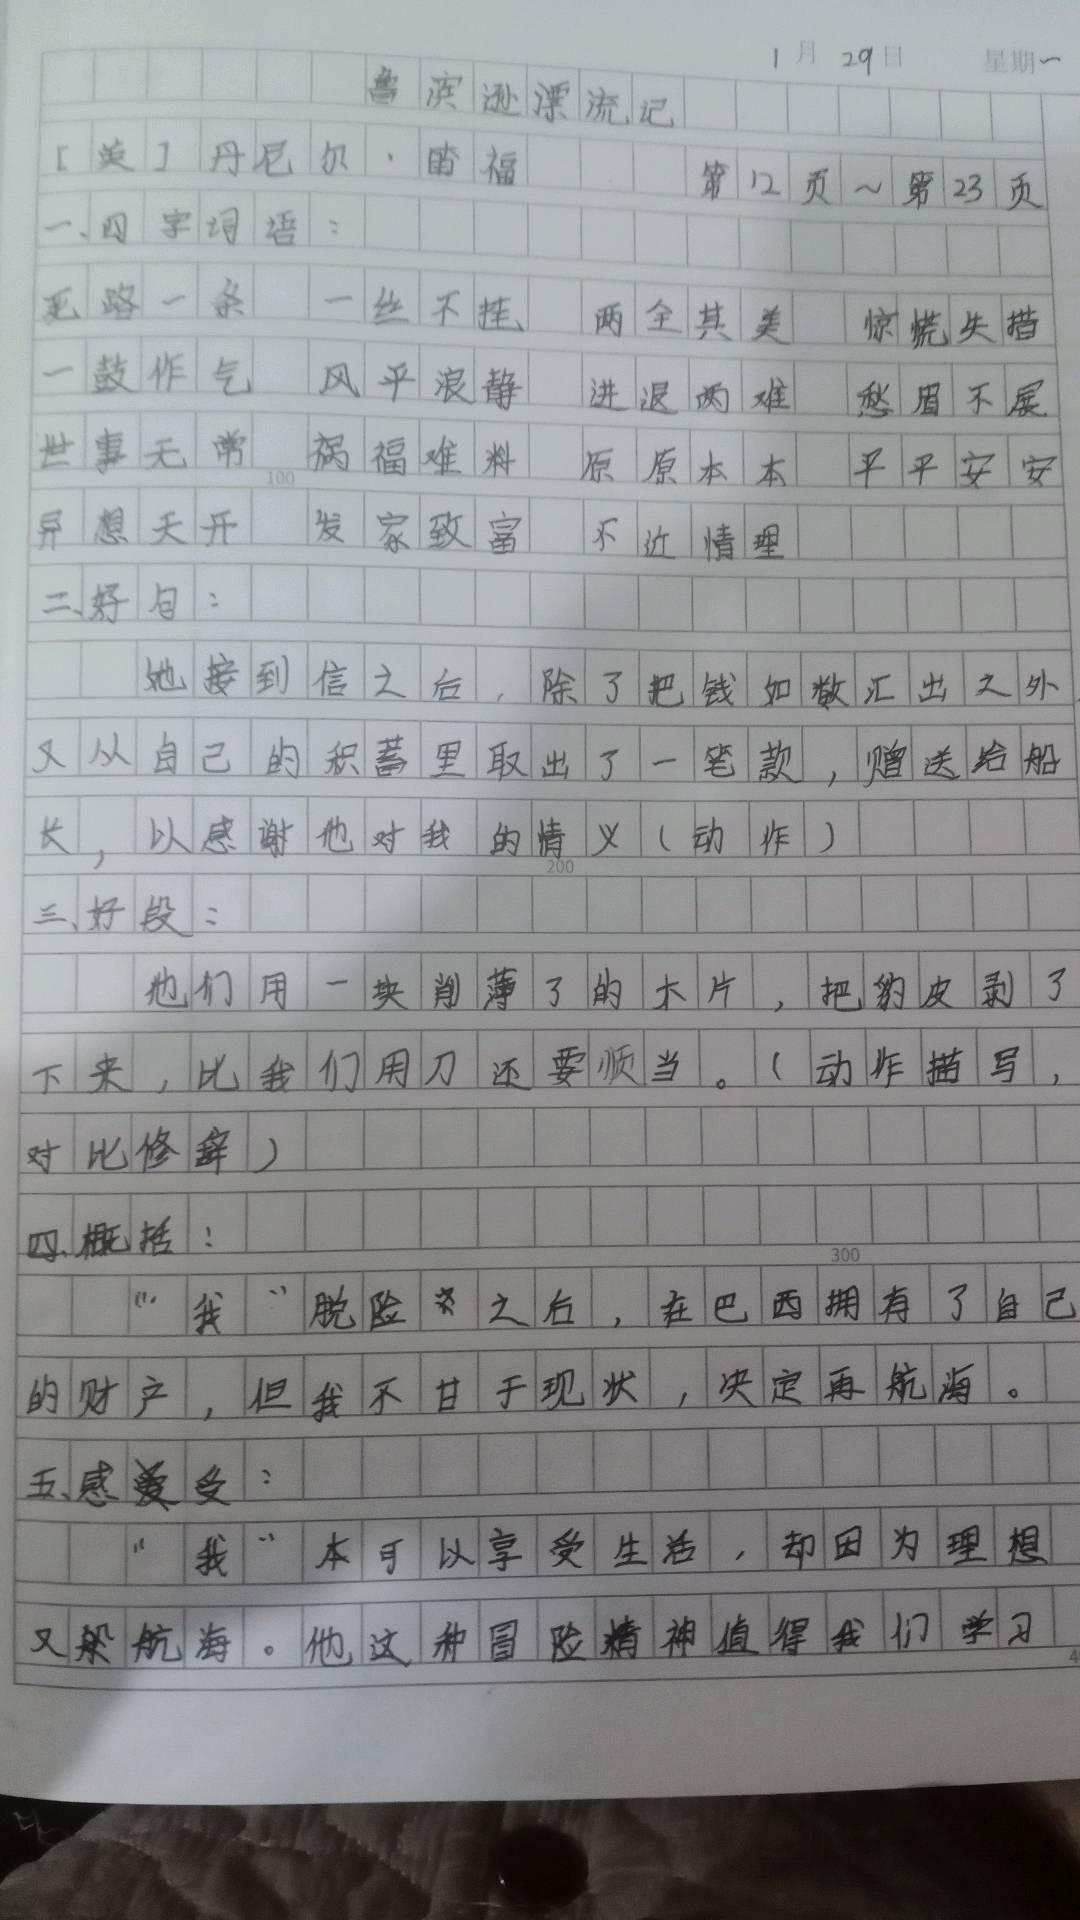 1月29日 星期一
鲁滨逊漂流记
[英]丹尼尔·笛福 第12页~第23页
一、四字词语：
死路一条 一丝不挂、 两全其美 惊慌失措
一鼓作气 风平浪静 进退两难 愁眉不展
世事无常 祸福难料 原原本本 平平安安
100
异想天开 发家致富 不近情理
二、好句：
她接到信之后，除了把钱如数汇出之外，
又从自己的积蓄里取出了一笔款，赠送给船
长，以感谢他对我的情义（动作）
200
三、好段：
他们用一块削薄了的木片，把豹皮剥了
下来，比我们用刀还要顺当。（动作描写，
对比修辞）
四、概括：
300
“我”脱险之后，在巴西拥有了自己
的财产，但我不甘于现状，决定再航海。
五、感受：
“我”本可以享受生活，却因为理想
又航海。他这种冒险精神值得我们学习